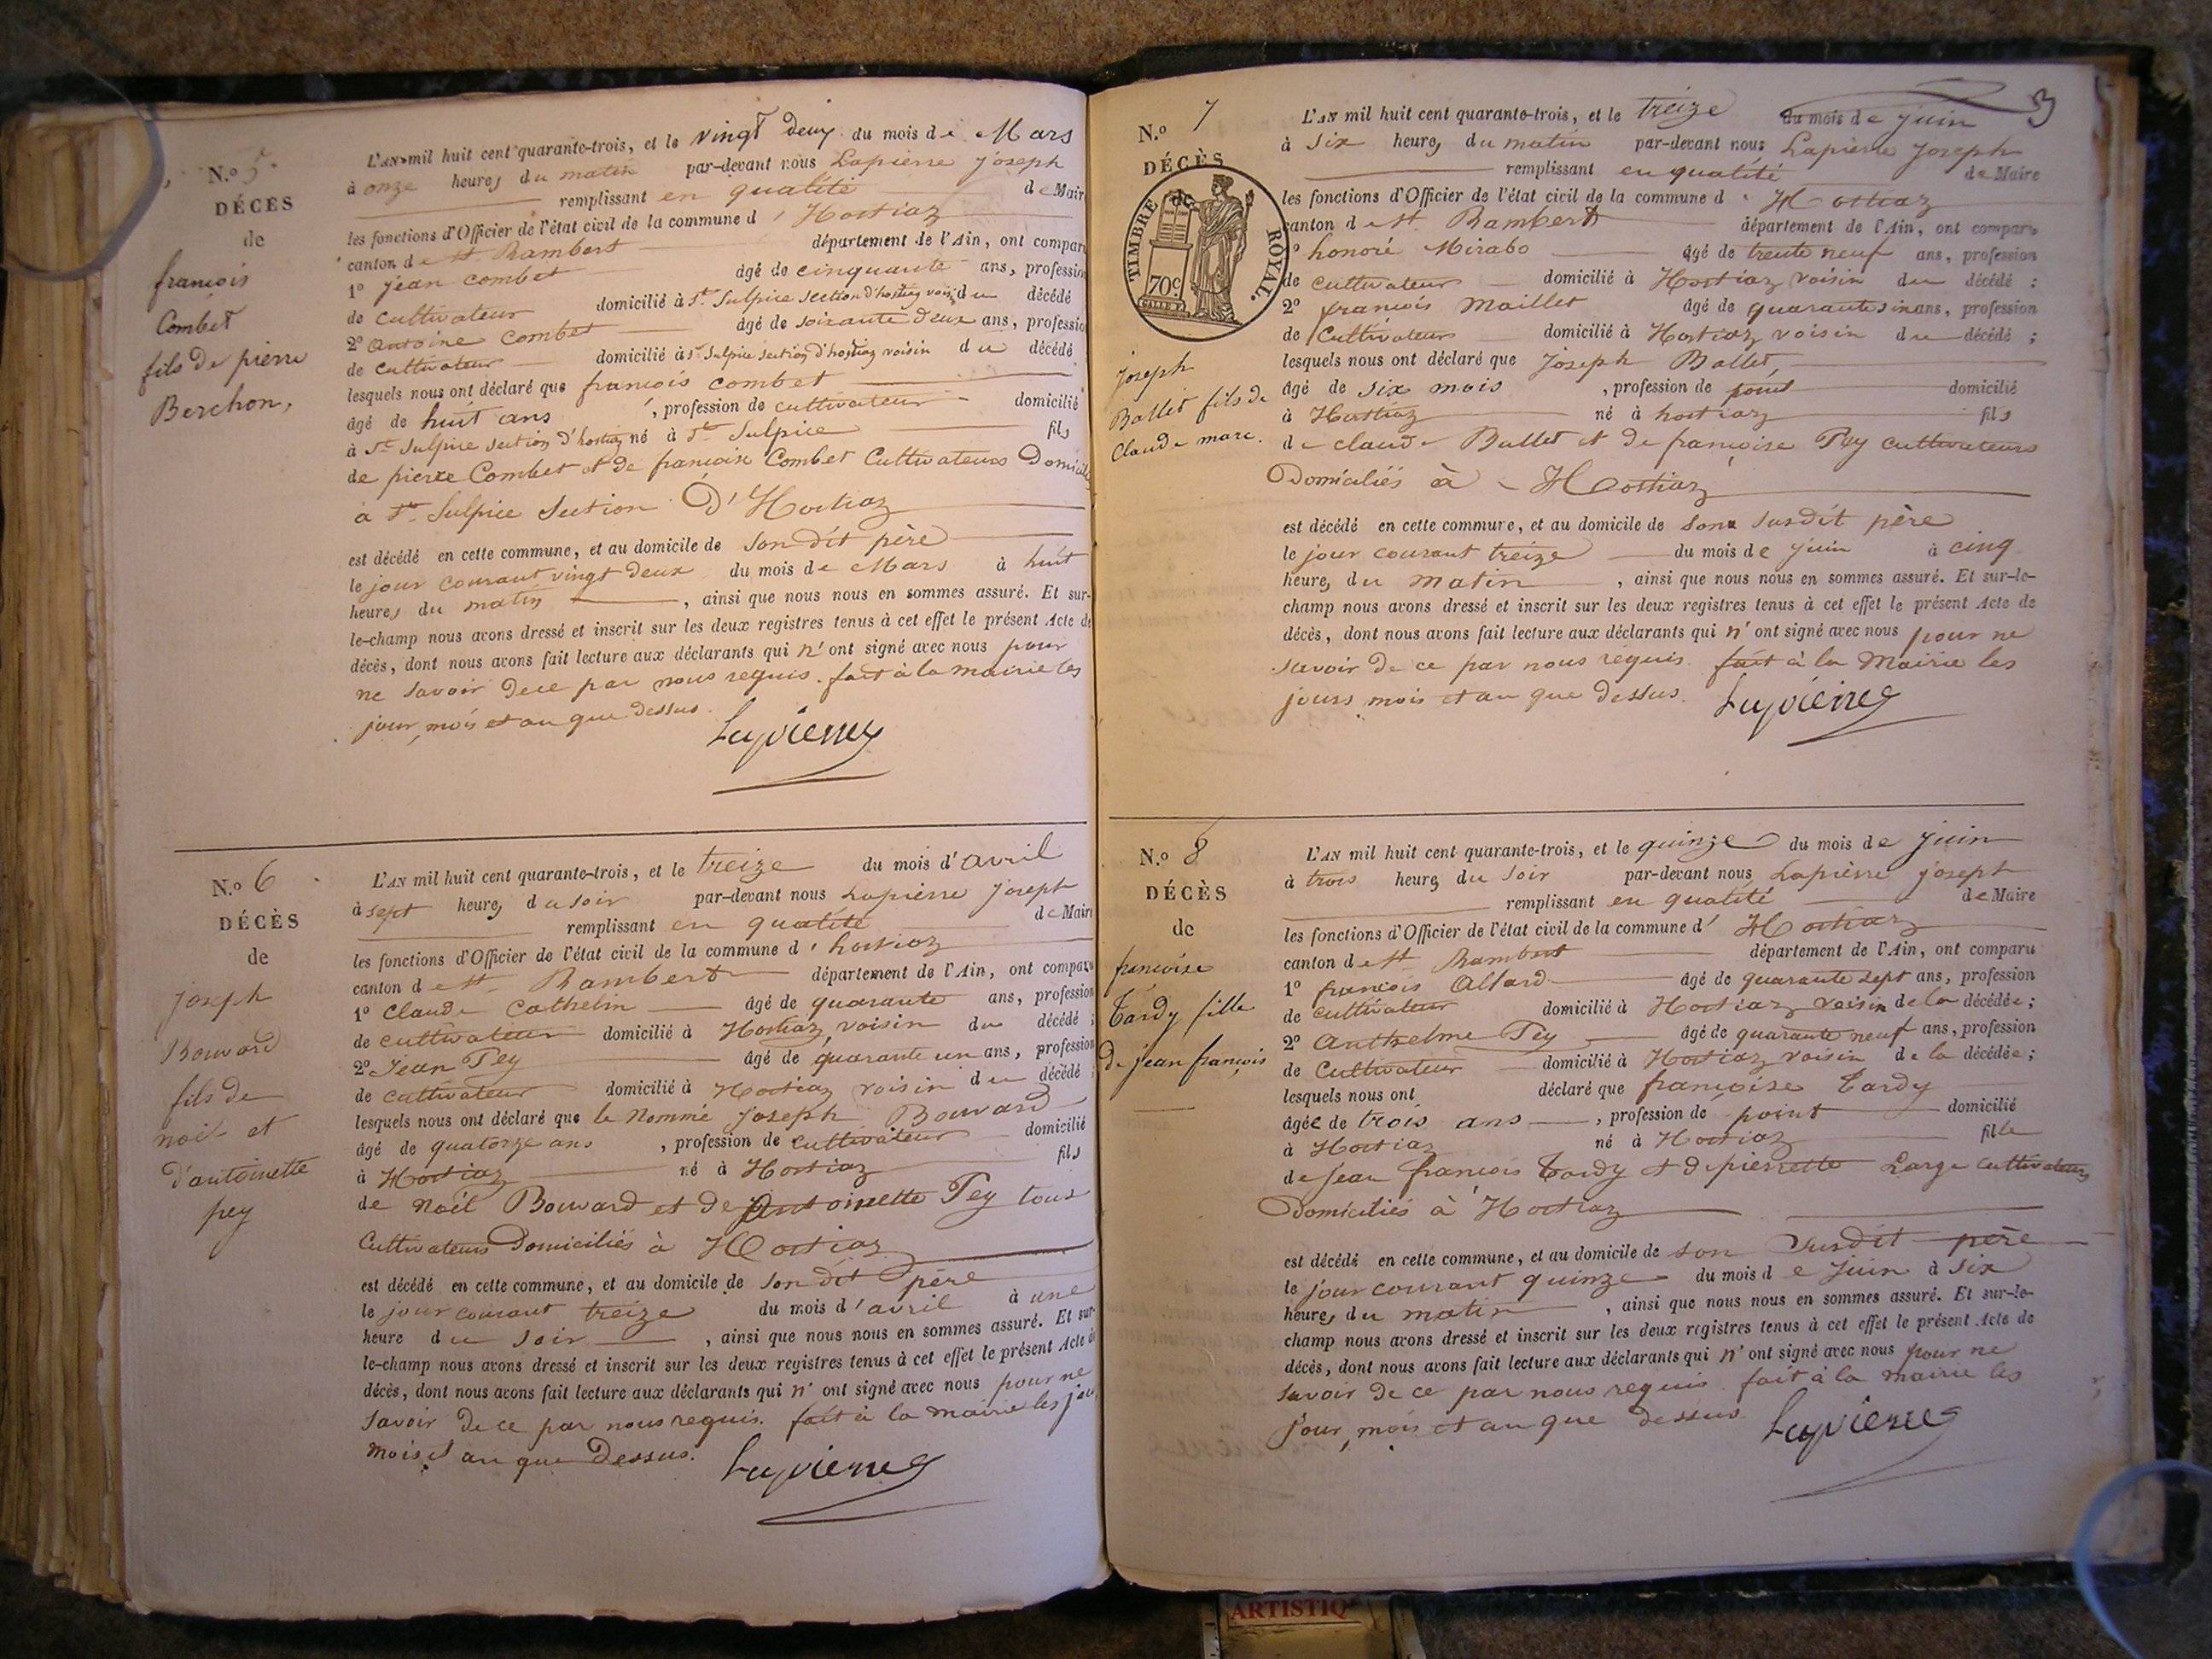 N.o 5
DÉCÈS
de
francois
Combet
fils de pierre
Berchon,
L'AN mil huit cent quarante-trois, et le vingt deux du mois de Mars
à onze heures du matin par-devant nous Lapierre joseph
remplissant en qualité de Maire
les fonctions d'Officier de l'état civil de la commune d' Hostiaz
canton de St Rambert département de l'Ain, ont comparu
1o jean combet âgé de cinquante ans, profession
de cultivateur domicilié à St Sulpice section d'hostiaz voisin du décédé
2o Antoine Combet âgé de soixante deux ans, profession
de cultivateur domicilié à St Sulpice section d'hostiaz voisin du décédé
lesquels nous ont déclaré que francois combet
âgé de huit ans, profession de cultivateur domicilié
à St Sulpice section d'hostiaz né à St Sulpice fils
de pierre Combet et de francoise Combet Cultivateurs Domiciliés
à St Sulpice Section D'Hostiaz
est décédé en cette commune, et au domicile de son dit père
le jour courant vingt deux du mois de Mars à huit
heures du matin, ainsi que nous nous en sommes assuré. Et sur-
le-champ nous avons dressé et inscrit sur les deux registres tenus à cet effet le présent Acte de
décès, dont nous avons fait lecture aux déclarants qui n'ont signé avec nous pour
ne savoir dece par nous requis. fait à la mairie les
jour, mois et an que dessus.
Lapierre
N.o 6
DÉCÈS
de
joseph
Bouvard
fils de
noel et
d'antoinette
pey
L'AN mil huit cent quarante-trois, et le treize du mois d'avril
à sept heures du soir par-devant nous Lapierre joseph
remplissant en qualité de Maire
les fonctions d'Officier de l'état civil de la commune d'hostiaz
canton de St Rambert département de l'Ain, ont comparu
1o Claude Cathelin âgé de quarante ans, profession
de cultivateur domicilié à Hostiaz, voisin du décédé ;
2o Jean Pey âgé de quarante un ans, profession
de cultivateur domicilié à Hostiaz voisin du décédé ;
lesquels nous ont déclaré que le Nommé Joseph Bouvard
âgé de quatorze ans, profession de cultivateur domicilié
à Hostiaz né à Hostiaz fils
de Noël Bouvard et de Antoinette Pey tous
Cultivateurs Domiciliés à Hostiaz
est décédé en cette commune, et au domicile de son dit père
le jour courant treize du mois d'avril à une
heure du soir, ainsi que nous nous en sommes assuré. Et sur-
le-champ nous avons dressé et inscrit sur les deux registres tenus à cet effet le présent Acte de
décès, dont nous avons fait lecture aux déclarants qui n'ont signé avec nous pour ne
savoir de ce par nous requis. fait à la mairie les jour
mois et an que Dessus.
Lapierre
3
N.o 7
DÉCÈS
de
TIMBRE ROYAL.
70c
joseph
Ballet fils de
Claude marc.
L'AN mil huit cent quarante-trois, et le treize du mois de juin
à six heures du matin par-devant nous Lapierre joseph
remplissant en qualité de Maire
les fonctions d'Officier de l'état civil de la commune d'Hostiaz
canton de St Rambert département de l'Ain, ont comparu
1o honoré Mirabo âgé de trente neuf ans, profession
de cultivateur domicilié à Hostiaz voisin du décédé ;
2o francois Maillet âgé de quarante six ans, profession
de Cultivateur domicilié à Hostiaz voisin du décédé ;
lesquels nous ont déclaré que Joseph Ballet,
âgé de six mois, profession de point domicilié
à Hostiaz né à hostiaz fils
de claude Ballet et de francoise Pey cultivateurs
Domiciliés à Hostiaz
est décédé en cette commune, et au domicile de son susdit père
le jour courant treize du mois de juin à cinq
heures du matin, ainsi que nous nous en sommes assuré. Et sur-le-
champ nous avons dressé et inscrit sur les deux registres tenus à cet effet le présent Acte de
décès, dont nous avons fait lecture aux déclarants qui n'ont signé avec nous pour ne
savoir de ce par nous requis. fait à la Mairie les
jours mois et an que dessus.
Lapierre
N.o 8
DÉCÈS
de
francoise
Tardy fille
de jean francois
L'AN mil huit cent quarante-trois, et le quinze du mois de juin
à trois heures du soir par-devant nous Lapierre joseph
remplissant en qualité de Maire
les fonctions d'Officier de l'état civil de la commune d'Hostiaz
canton de St Rambert département de l'Ain, ont comparu
1o francois Allard âgé de quarante sept ans, profession
de cultivateur domicilié à Hostiaz voisin de la décédée ;
2o Anthelme Pey âgé de quarante neuf ans, profession
de Cultivateur domicilié à Hostiaz voisin de la décédée ;
lesquels nous ont déclaré que francoise Tardy
âgée de trois ans, profession de point domicilié
à Hostiaz né à Hostiaz fille
de Jean francois Tardy et de pierrette Large cultivateurs
Domiciliés à Hostiaz
est décédé en cette commune, et au domicile de son susdit père
le jour courant quinze du mois de Juin à six
heures du matin, ainsi que nous nous en sommes assuré. Et sur-le-
champ nous avons dressé et inscrit sur les deux registres tenus à cet effet le présent Acte de
décès, dont nous avons fait lecture aux déclarants qui n'ont signé avec nous pour ne
savoir de ce par nous requis. fait à la mairie les
jour, mois et an que dessus.
Lapierre
ARTISTIQ